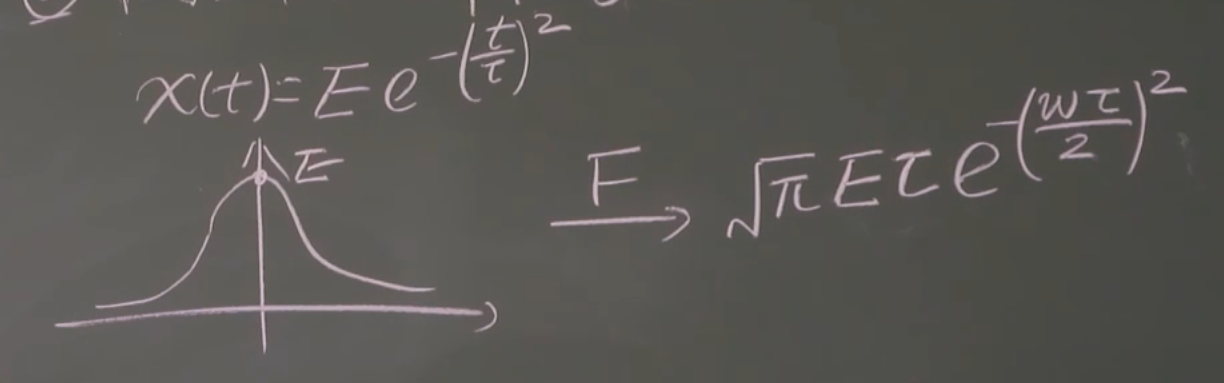 x(t)=Ee^{-(\frac{t}{τ})^2}
E
F
\sqrt{π}Eτe^{-(\frac{ωτ}{2})^2}